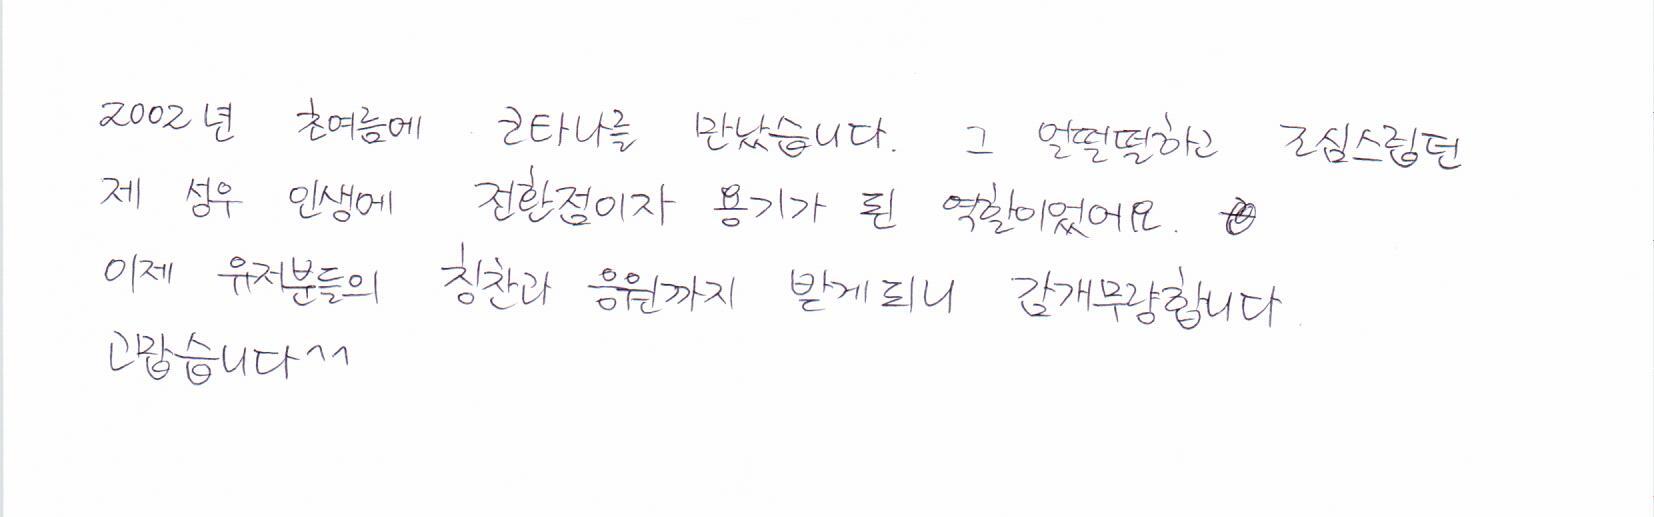 2002년 초여름에 코타나를 만났습니다. 그 얼떨떨하고 조심스럽던
제 성우 인생에 전환점이자 용기가 된 역할이었어요.
이제 유저분들의 칭찬과 응원까지 받게되니 감개무량합니다
고맙습니다^^